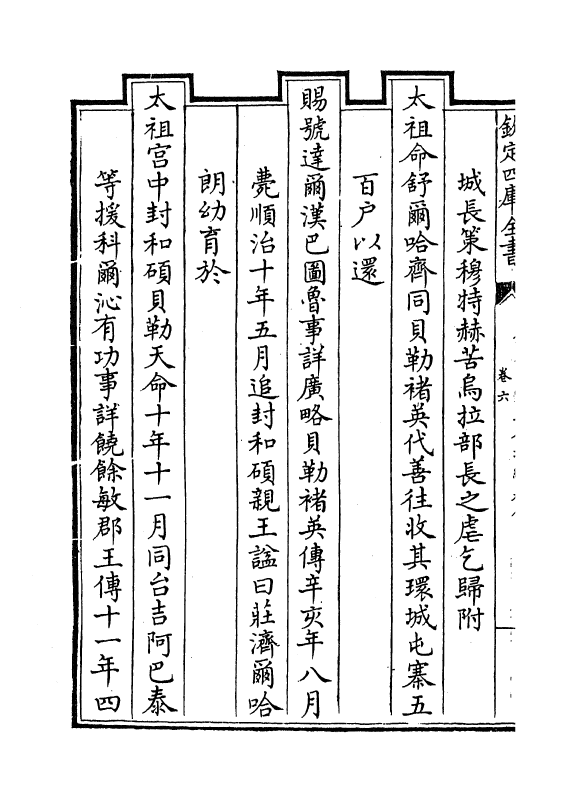 欽定四庫全書
卷六
城長策穆特赫苦烏拉部長之虐乞歸附
太祖命舒爾哈齊同貝勒褚英代善往收其環城屯寨五
百户以還
賜號達爾漢巴圖魯事詳廣略貝勒褚英傳辛亥年八月
薨順治十年五月追封和碩親王諡曰莊濟爾哈
朗幼育於
太祖宫中封和碩貝勒天命十年十一月同台吉阿巴泰
等援科爾沁有功事詳饒餘敏郡王傳十一年四